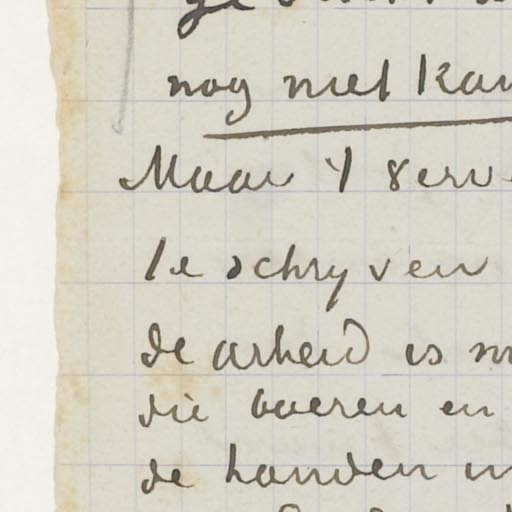 nog niet kan
Maar 't
te schryven
de arbeid is
die boeren en
de handen